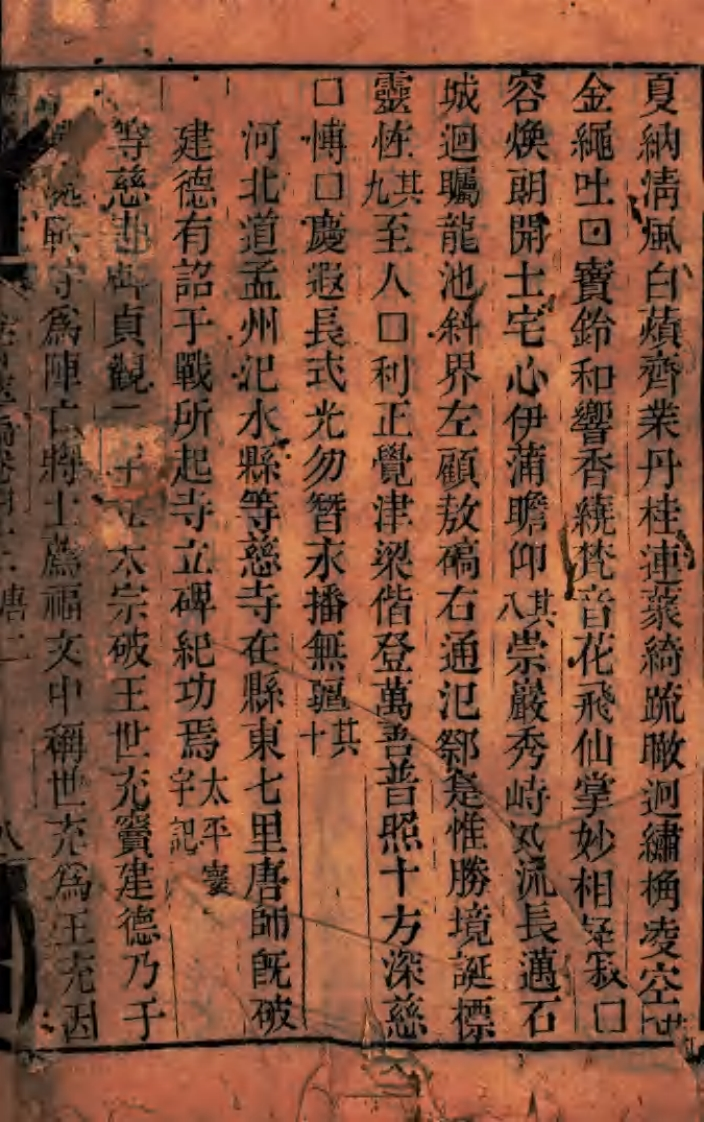 夏納清風白蘋齊業丹桂連蒙綺疏瞰迥繡桷凌空其七
金繩吐曰寶鈴和響香繞梵音花飛仙掌妙相凝寂□
容煥朗開士宅心伊蒲瞻仰其八崇巖秀峙氣流長邁石
城迴矚龍池斜界左顧敖碻右通氾鄒寔惟勝境誕標
靈恠其九至人□利正覺津梁偕登萬善普照十方深慈
□慱□慶遐長式光勿朁永播無疆其十
河北道孟州汜水縣等慈寺在縣東七里唐師旣破
建德有詔于戰所起寺立碑紀功焉太平寰宇記
等慈寺碑貞觀二年立太宗破王世充竇建德乃于
戰為陣亡將士薦福文中稱世充為王充因
卷四十二 唐二 八